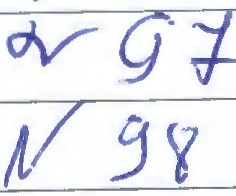 N 97
N 98